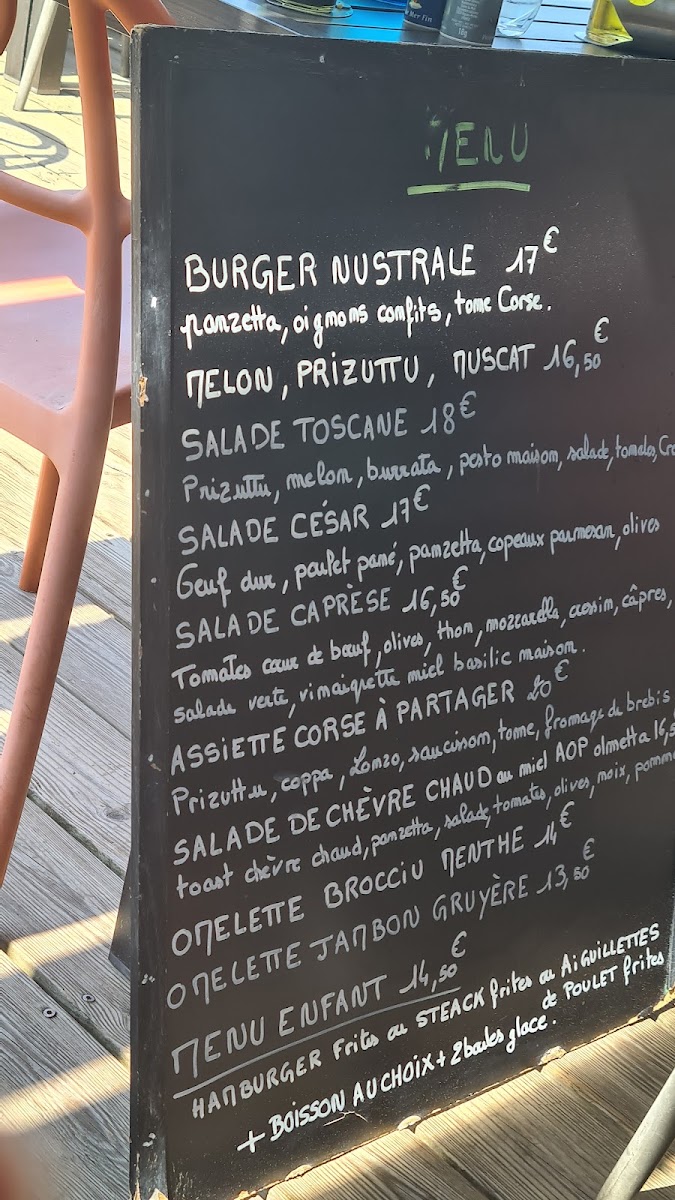 MENU
BURGER NUSTRALE 17€
panzetta, oignons confits, tome Corse.
MELON, PRIZUTTU, MUSCAT 16,50€
SALADE TOSCANE 18€
Prizuttu, melon, burrata, pesto maison, salade, tomates, Cro
SALADE CÉSAR 17€
Oeuf dur, poulet pané, panzetta, copeaux parmesan, olives
SALADE CAPRÈSE 16,50€
Tomates cœur de bœuf, olives, thon, mozzarella, câpres,
salade verte, vinaigrette miel basilic maison.
ASSIETTE CORSE À PARTAGER 20€
Prizuttu, coppa, Lonzo, saucisson, tome, fromage de brebis
SALADE DE CHÈVRE CHAUD au miel AOP olmetta 16,5
toast chèvre chaud, panzetta, salade, tomates, olives, noix, pomme
OMELETTE BROCCIU MENTHE 14€
OMELETTE JAMBON GRUYÈRE 13,50€
MENU ENFANT 14,50€
HAMBURGER Frites ou STEACK frites ou AiGUILLETTES
de POULET frites
+ BOISSON AU CHOIX + 2 boules glace.